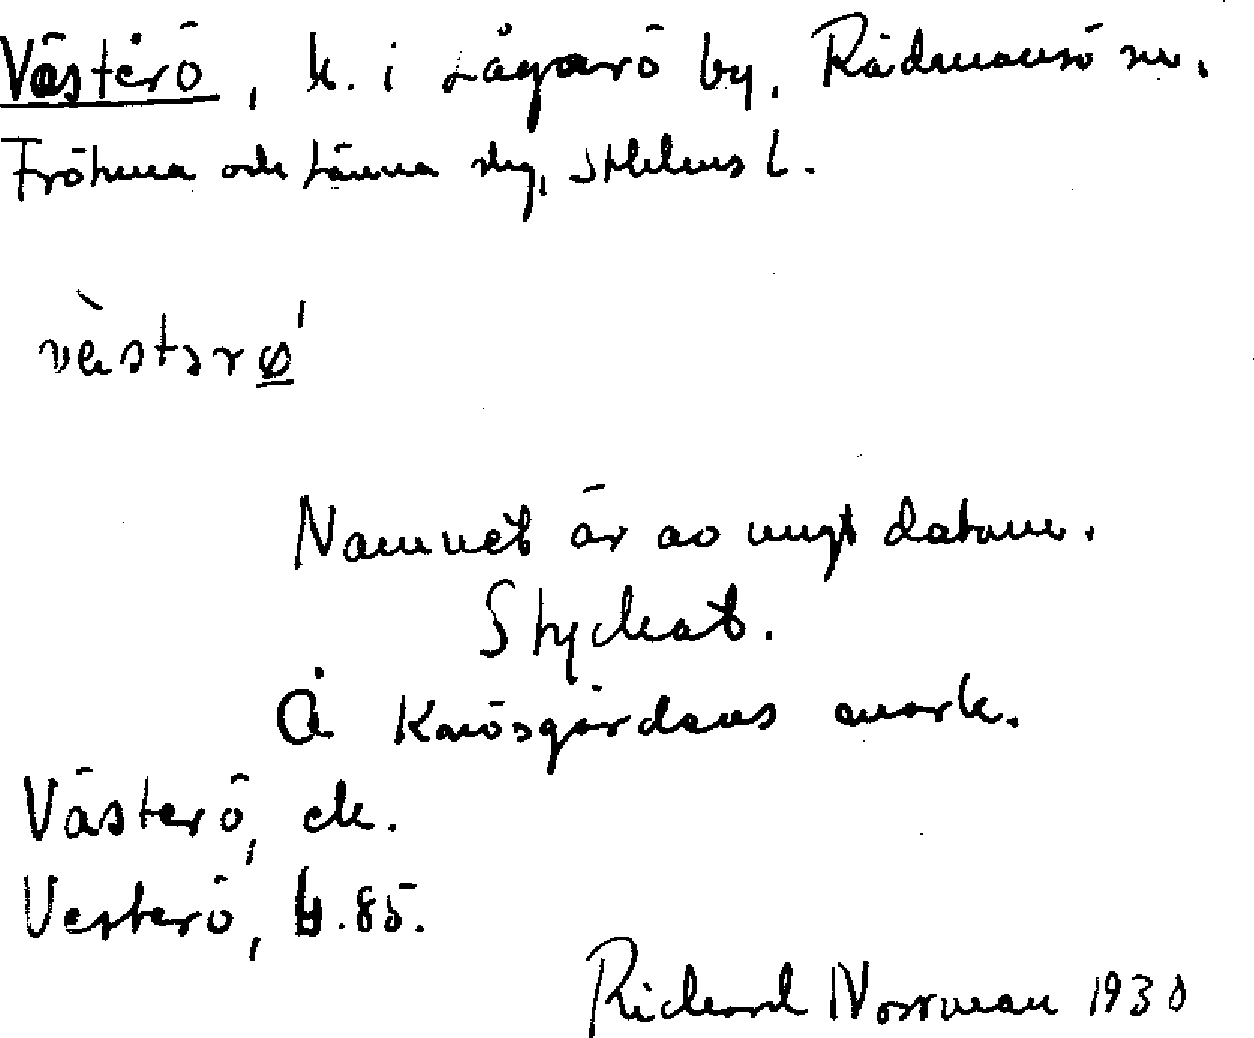 Västerö, h. i Lågarö by, Rådmansö sn.
Frötuna och Länna slg, Sthlms l.
vèstərø̲'
Namnet är av ungt datum.
Styckat.
Å Knösgårdens mark.
Västerö, ek.
Vesterö, 85.
Richard Norrman 1930